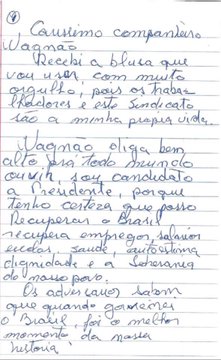 Caríssimo companheiro
Wagnão
Recebi a blusa que
vou usar, com muito
orgulho, pois os traba-
lhadores e este Sindicato
são a minha propria vida.
Wagnão diga bem
alto pra todo mundo
ouvir, sou candidato
a Presidente, porque
tenho certeza que posso
Recuperar o Brasil
recupera empregos, salarios
escolas, saude, autoestima
dignidade e a Soberania
do nosso povo.
Os adversarios sabem
que quando governei
o Brasil, foi o melhor
momento da nossa
historia